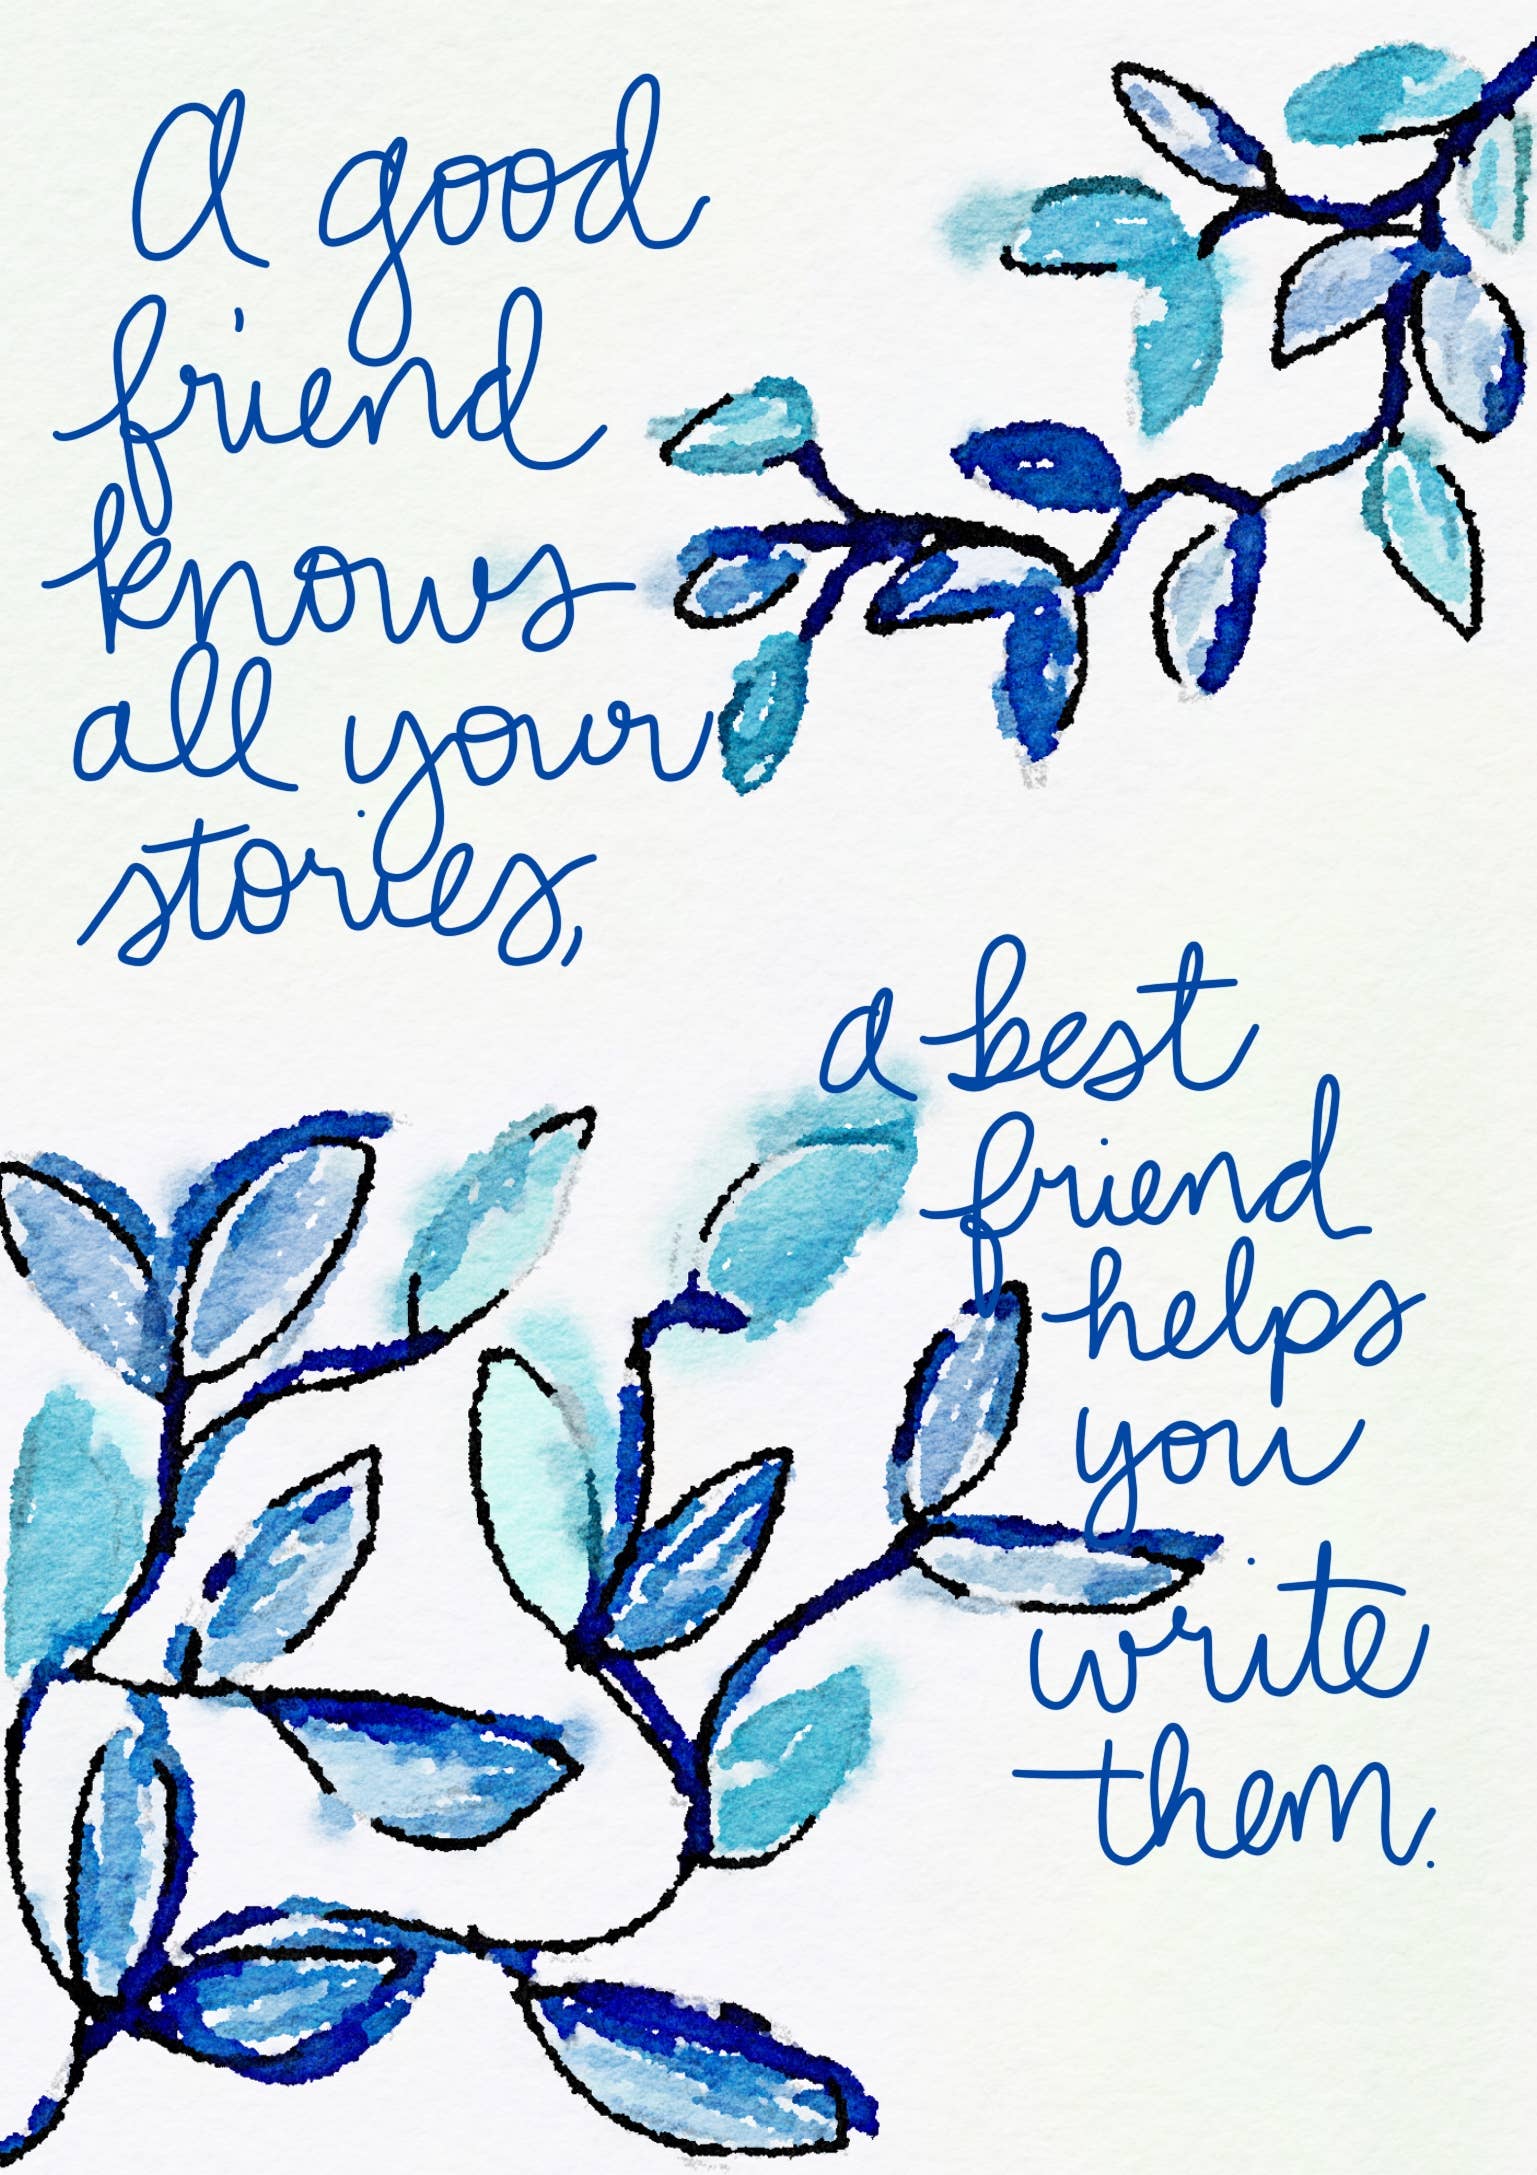 A good
friend
knows
all your
stories,
a best
friend
helps
you
write
them.